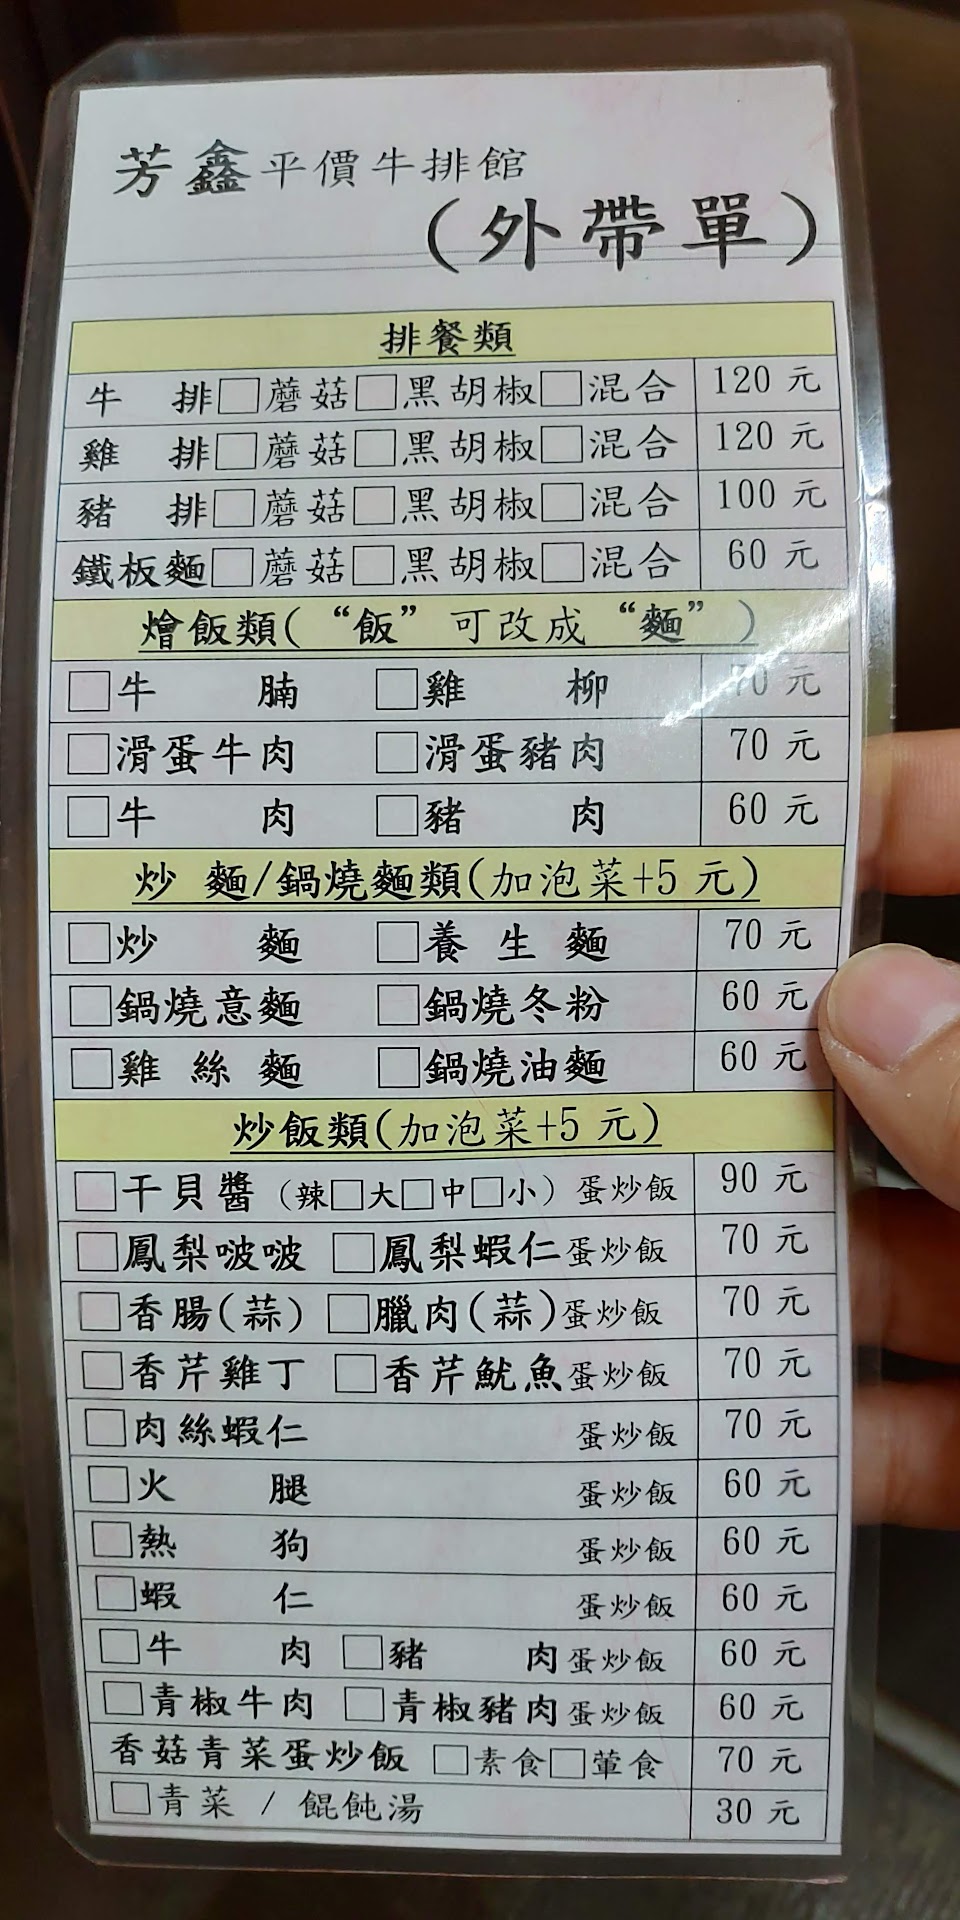 芳鑫平價牛排館
(外帶單)
排餐類
牛 排□蘑菇□黑胡椒□混合 120 元
雞 排□蘑菇□黑胡椒□混合 120 元
豬 排□蘑菇□黑胡椒□混合 100 元
鐵板麵□蘑菇□黑胡椒□混合 60 元
燴飯類(“飯”可改成“麵”)
□牛 腩 □雞 柳 70 元
□滑蛋牛肉 □滑蛋豬肉 70 元
□牛 肉 □豬 肉 60 元
炒 麵/鍋燒麵類(加泡菜+5 元)
□炒 麵 □養 生 麵 70 元
□鍋燒意麵 □鍋燒冬粉 60 元
□雞 絲 麵 □鍋燒油麵 60 元
炒飯類(加泡菜+5 元)
□干貝醬(辣□大□中□小)蛋炒飯 90 元
□鳳梨啵啵 □鳳梨蝦仁蛋炒飯 70 元
□香腸(蒜) □臘肉(蒜)蛋炒飯 70 元
□香芹雞丁 □香芹魷魚蛋炒飯 70 元
□肉絲蝦仁 蛋炒飯 70 元
□火 腿 蛋炒飯 60 元
□熱 狗 蛋炒飯 60 元
□蝦 仁 蛋炒飯 60 元
□牛 肉 □豬 肉蛋炒飯 60 元
□青椒牛肉 □青椒豬肉蛋炒飯 60 元
香菇青菜蛋炒飯 □素食□葷食 70 元
□青菜 / 餛飩湯 30 元